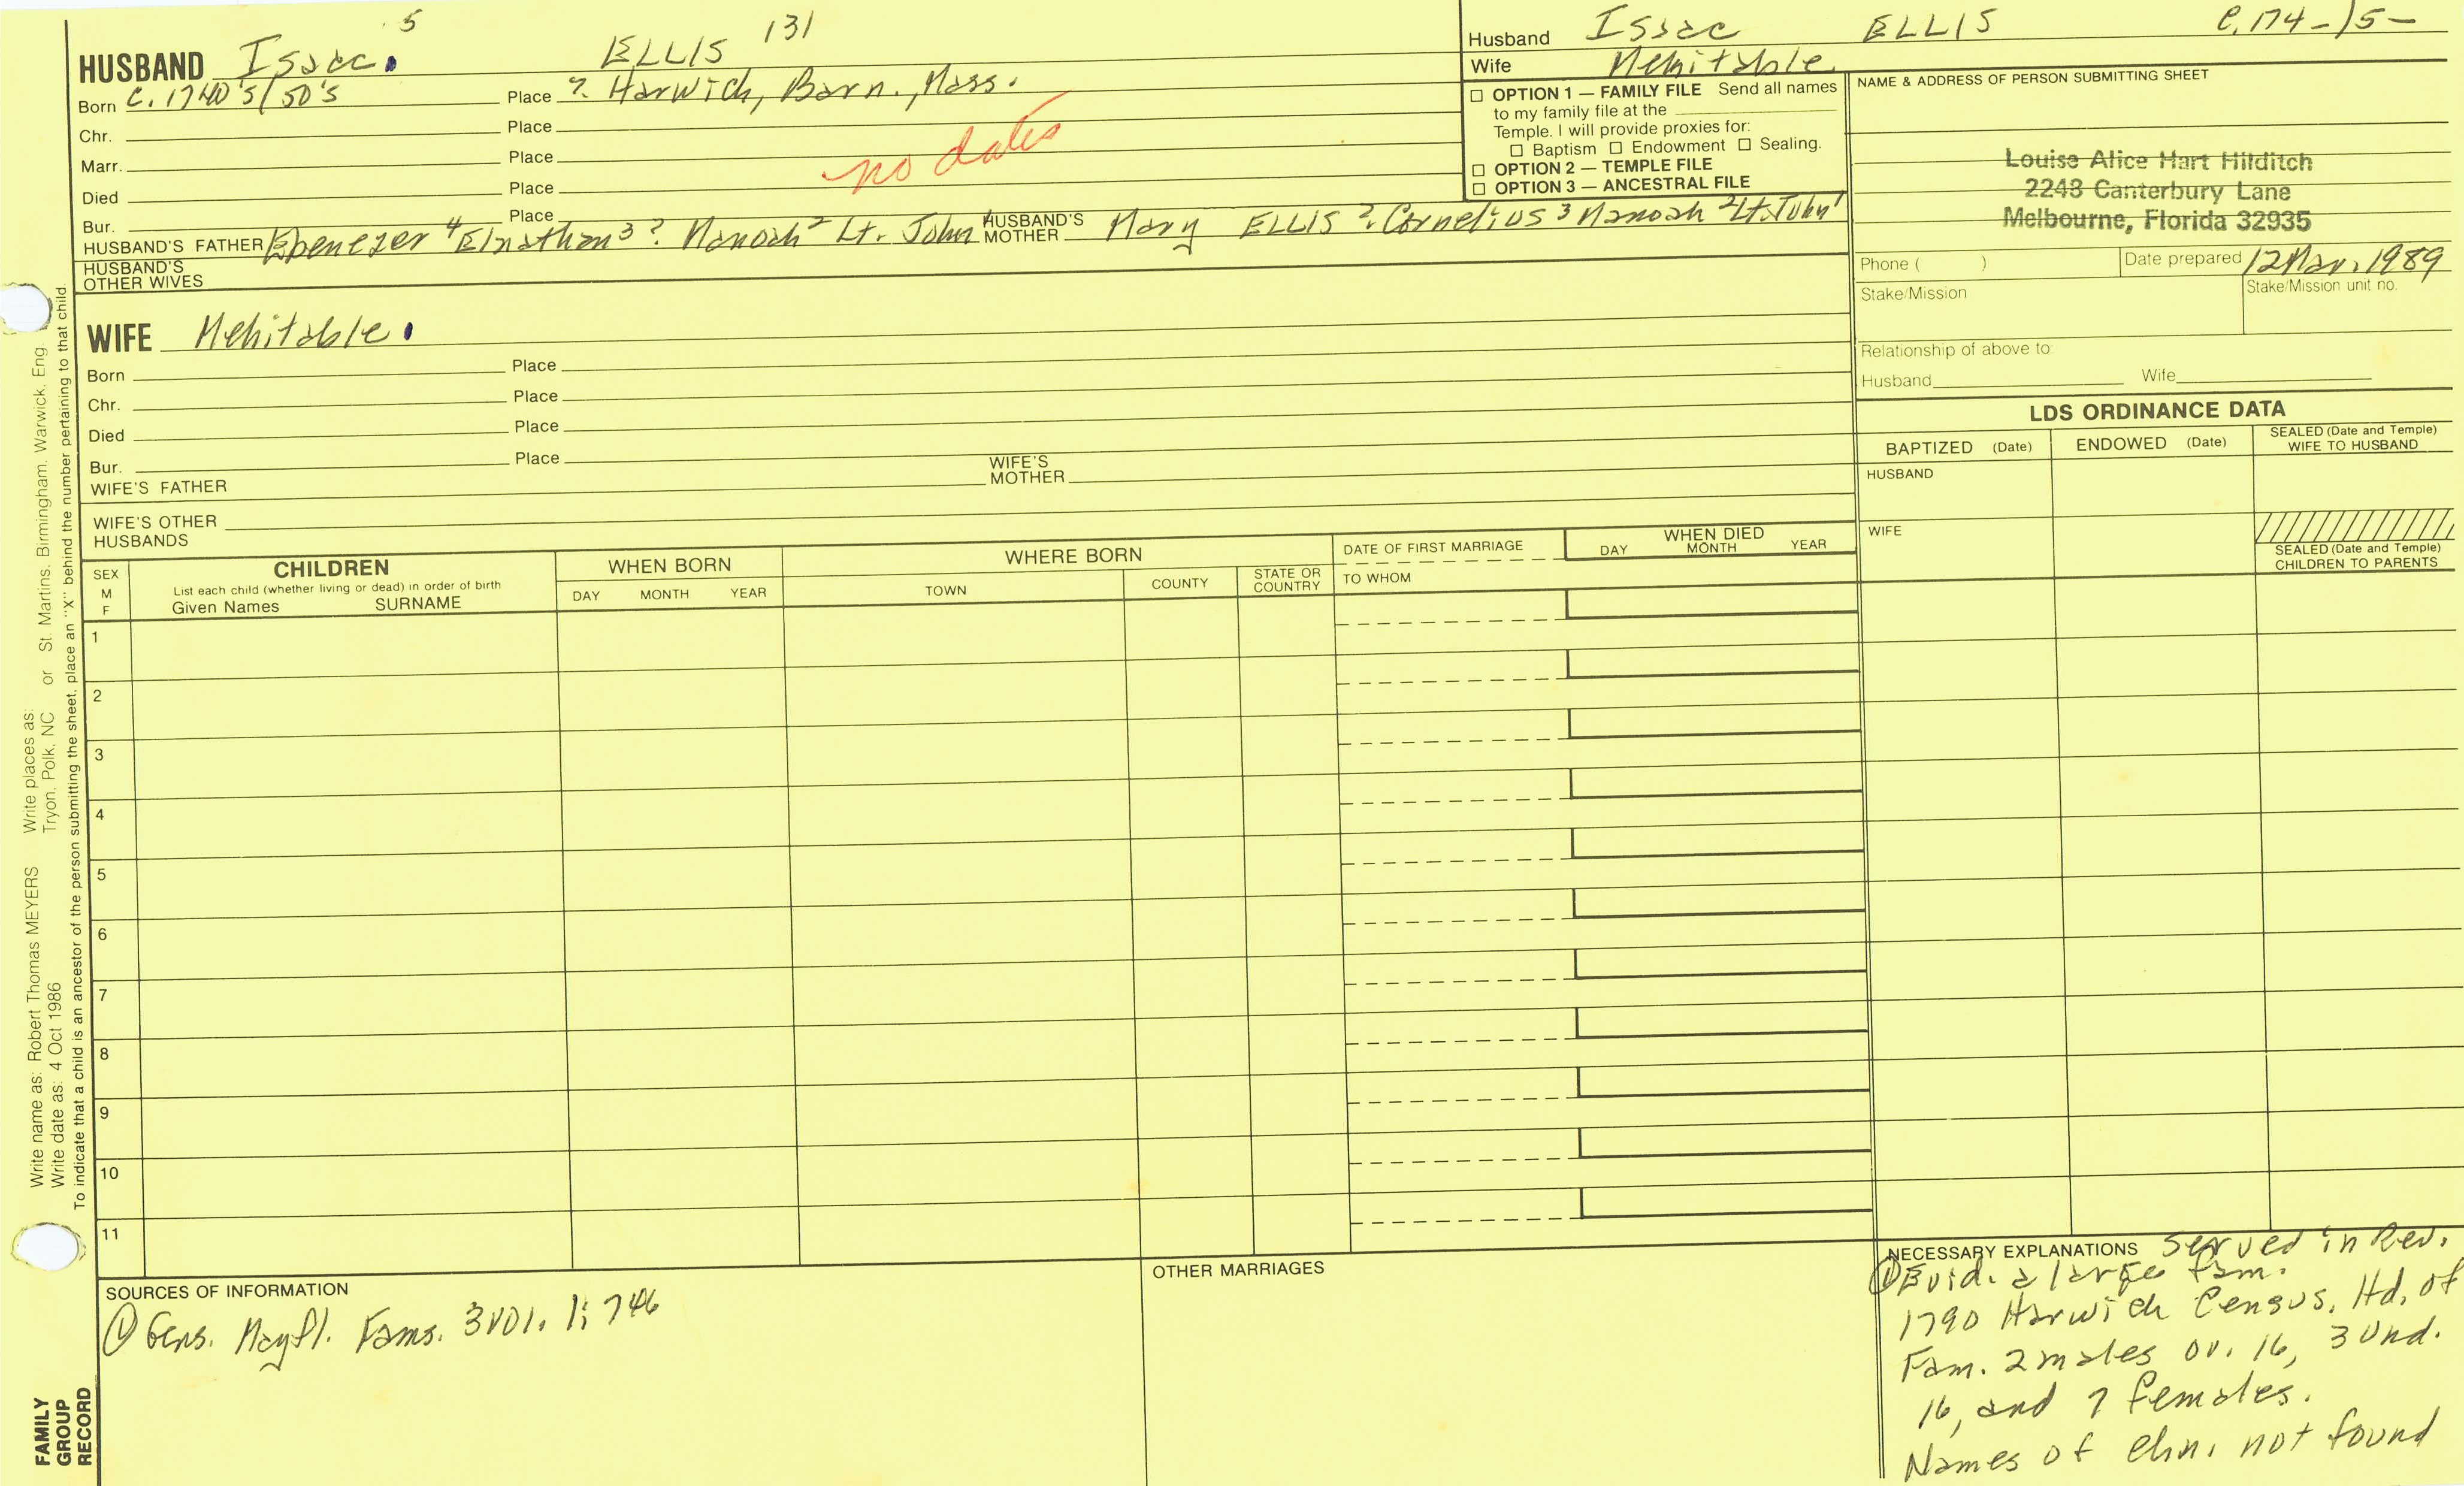 HUSBAND Issac. 5 ELLIS 131
Born c. 1740's/50's Place ? Harwich, Barn., Mass.
Chr. Place
Marr. Place
no dates
Died Place
Bur. Place
HUSBAND'S FATHER Ebenezer 4 Elnathan 3 ? Manoah 2 Lt. John HUSBAND'S MOTHER Mary ELLIS ? Cornelius 3 Manoah 2 Lt. John 1
HUSBAND'S OTHER WIVES
WIFE Mehitable.
Born Place
Chr. Place
Died Place
Bur. Place
WIFE'S FATHER WIFE'S MOTHER
WIFE'S OTHER HUSBANDS
Husband Issac ELLIS c. 174-/5-
Wife Mehitable
☐ OPTION 1 — FAMILY FILE Send all names
to my family file at the
Temple. I will provide proxies for:
☐ Baptism ☐ Endowment ☐ Sealing.
☐ OPTION 2 — TEMPLE FILE
☐ OPTION 3 — ANCESTRAL FILE
NAME & ADDRESS OF PERSON SUBMITTING SHEET
Louise Alice Hart Hilditch
2248 Canterbury Lane
Melbourne, Florida 32935
Phone ( ) Date prepared 12 Mar. 1989
Stake/Mission Stake/Mission unit no.
Relationship of above to
Husband Wife
LDS ORDINANCE DATA
BAPTIZED (Date) ENDOWED (Date) SEALED (Date and Temple) WIFE TO HUSBAND
HUSBAND
WIFE
SEALED (Date and Temple)
CHILDREN TO PARENTS
SEX M F
CHILDREN
List each child (whether living or dead) in order of birth
Given Names SURNAME
WHEN BORN
DAY MONTH YEAR
WHERE BORN
TOWN COUNTY STATE OR COUNTRY
DATE OF FIRST MARRIAGE
TO WHOM
WHEN DIED
DAY MONTH YEAR
1
2
3
4
5
6
7
8
9
10
11
SOURCES OF INFORMATION
① Gens. Mayfl. Fams. 3 vol. 1; 746
OTHER MARRIAGES
NECESSARY EXPLANATIONS served in Rev.
① Evid. a large fam.
1790 Harwich Census, Hd. of
Fam. 2 males ov. 16, 3 und.
16, and 7 females.
Names of chn. not found
Write name as: Robert Thomas MEYERS Write places as: Tryon, Polk, NC or St. Martins, Birmingham, Warwick, Eng.
Write date as: 4 Oct 1986
To indicate that a child is an ancestor of the person submitting the sheet, place an "X" behind the number pertaining to that child.
FAMILY
GROUP
RECORD